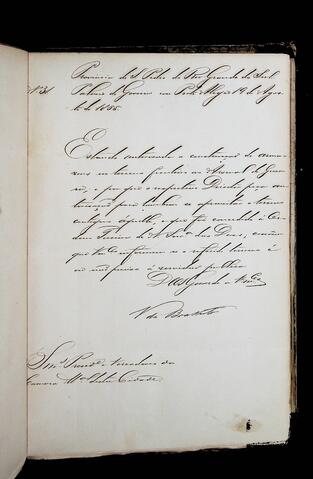 N. 31
Provincia de S. Pedro do Rio Grande do Sul
Palacio do Governo em Porto Alegre 19 de Agos-
to de 1855.
Estando autorisada a construcção de arma-
zens no terreno fronteiro ao Arsenal de Guer-
ra, e pedindo o respectivo Director
autorisação para tambem se aproveitar o terreno
contiguo áquelle, e que foi concedido á
Terceira de N. Snr.ª das Dores,
que V.mces informem se o referido terreno é
ou não preciso á servidão publica.
Deos Guarde a V.mces
Snr.es Presid.e e Vereadores da
Camara M.al desta Cidade.